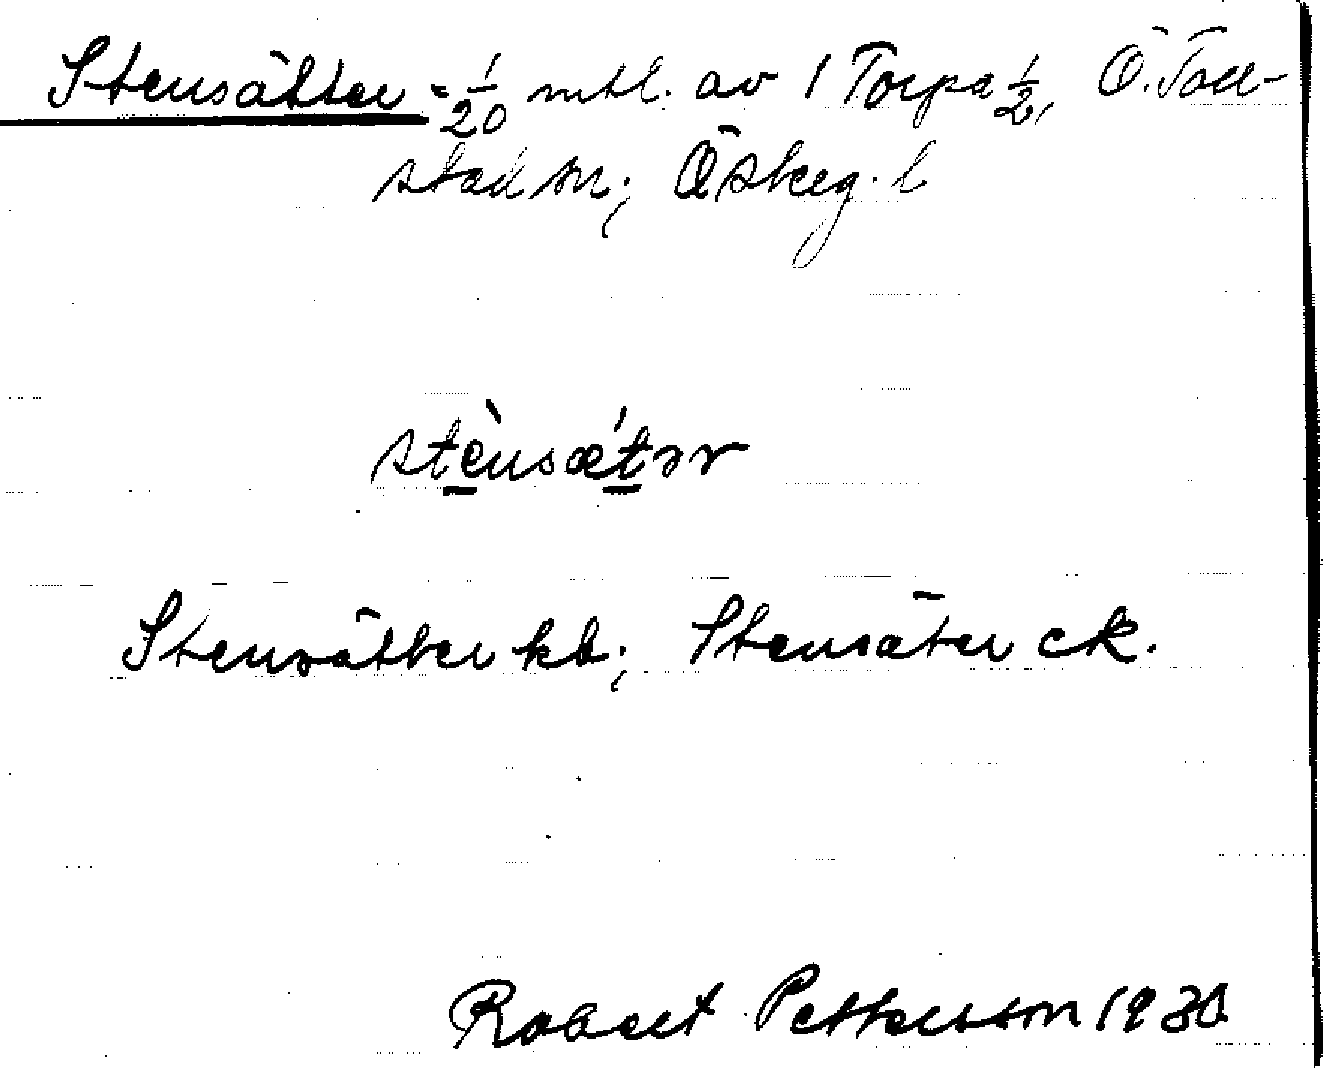 Stensätter = 1/20 mtl. av 1 Torpa 1/2, Ö. Toll-
stad sn; Österg. l
stènsætər
Stensätter kb; Stensäter ek.
Robert Pettersson 1930